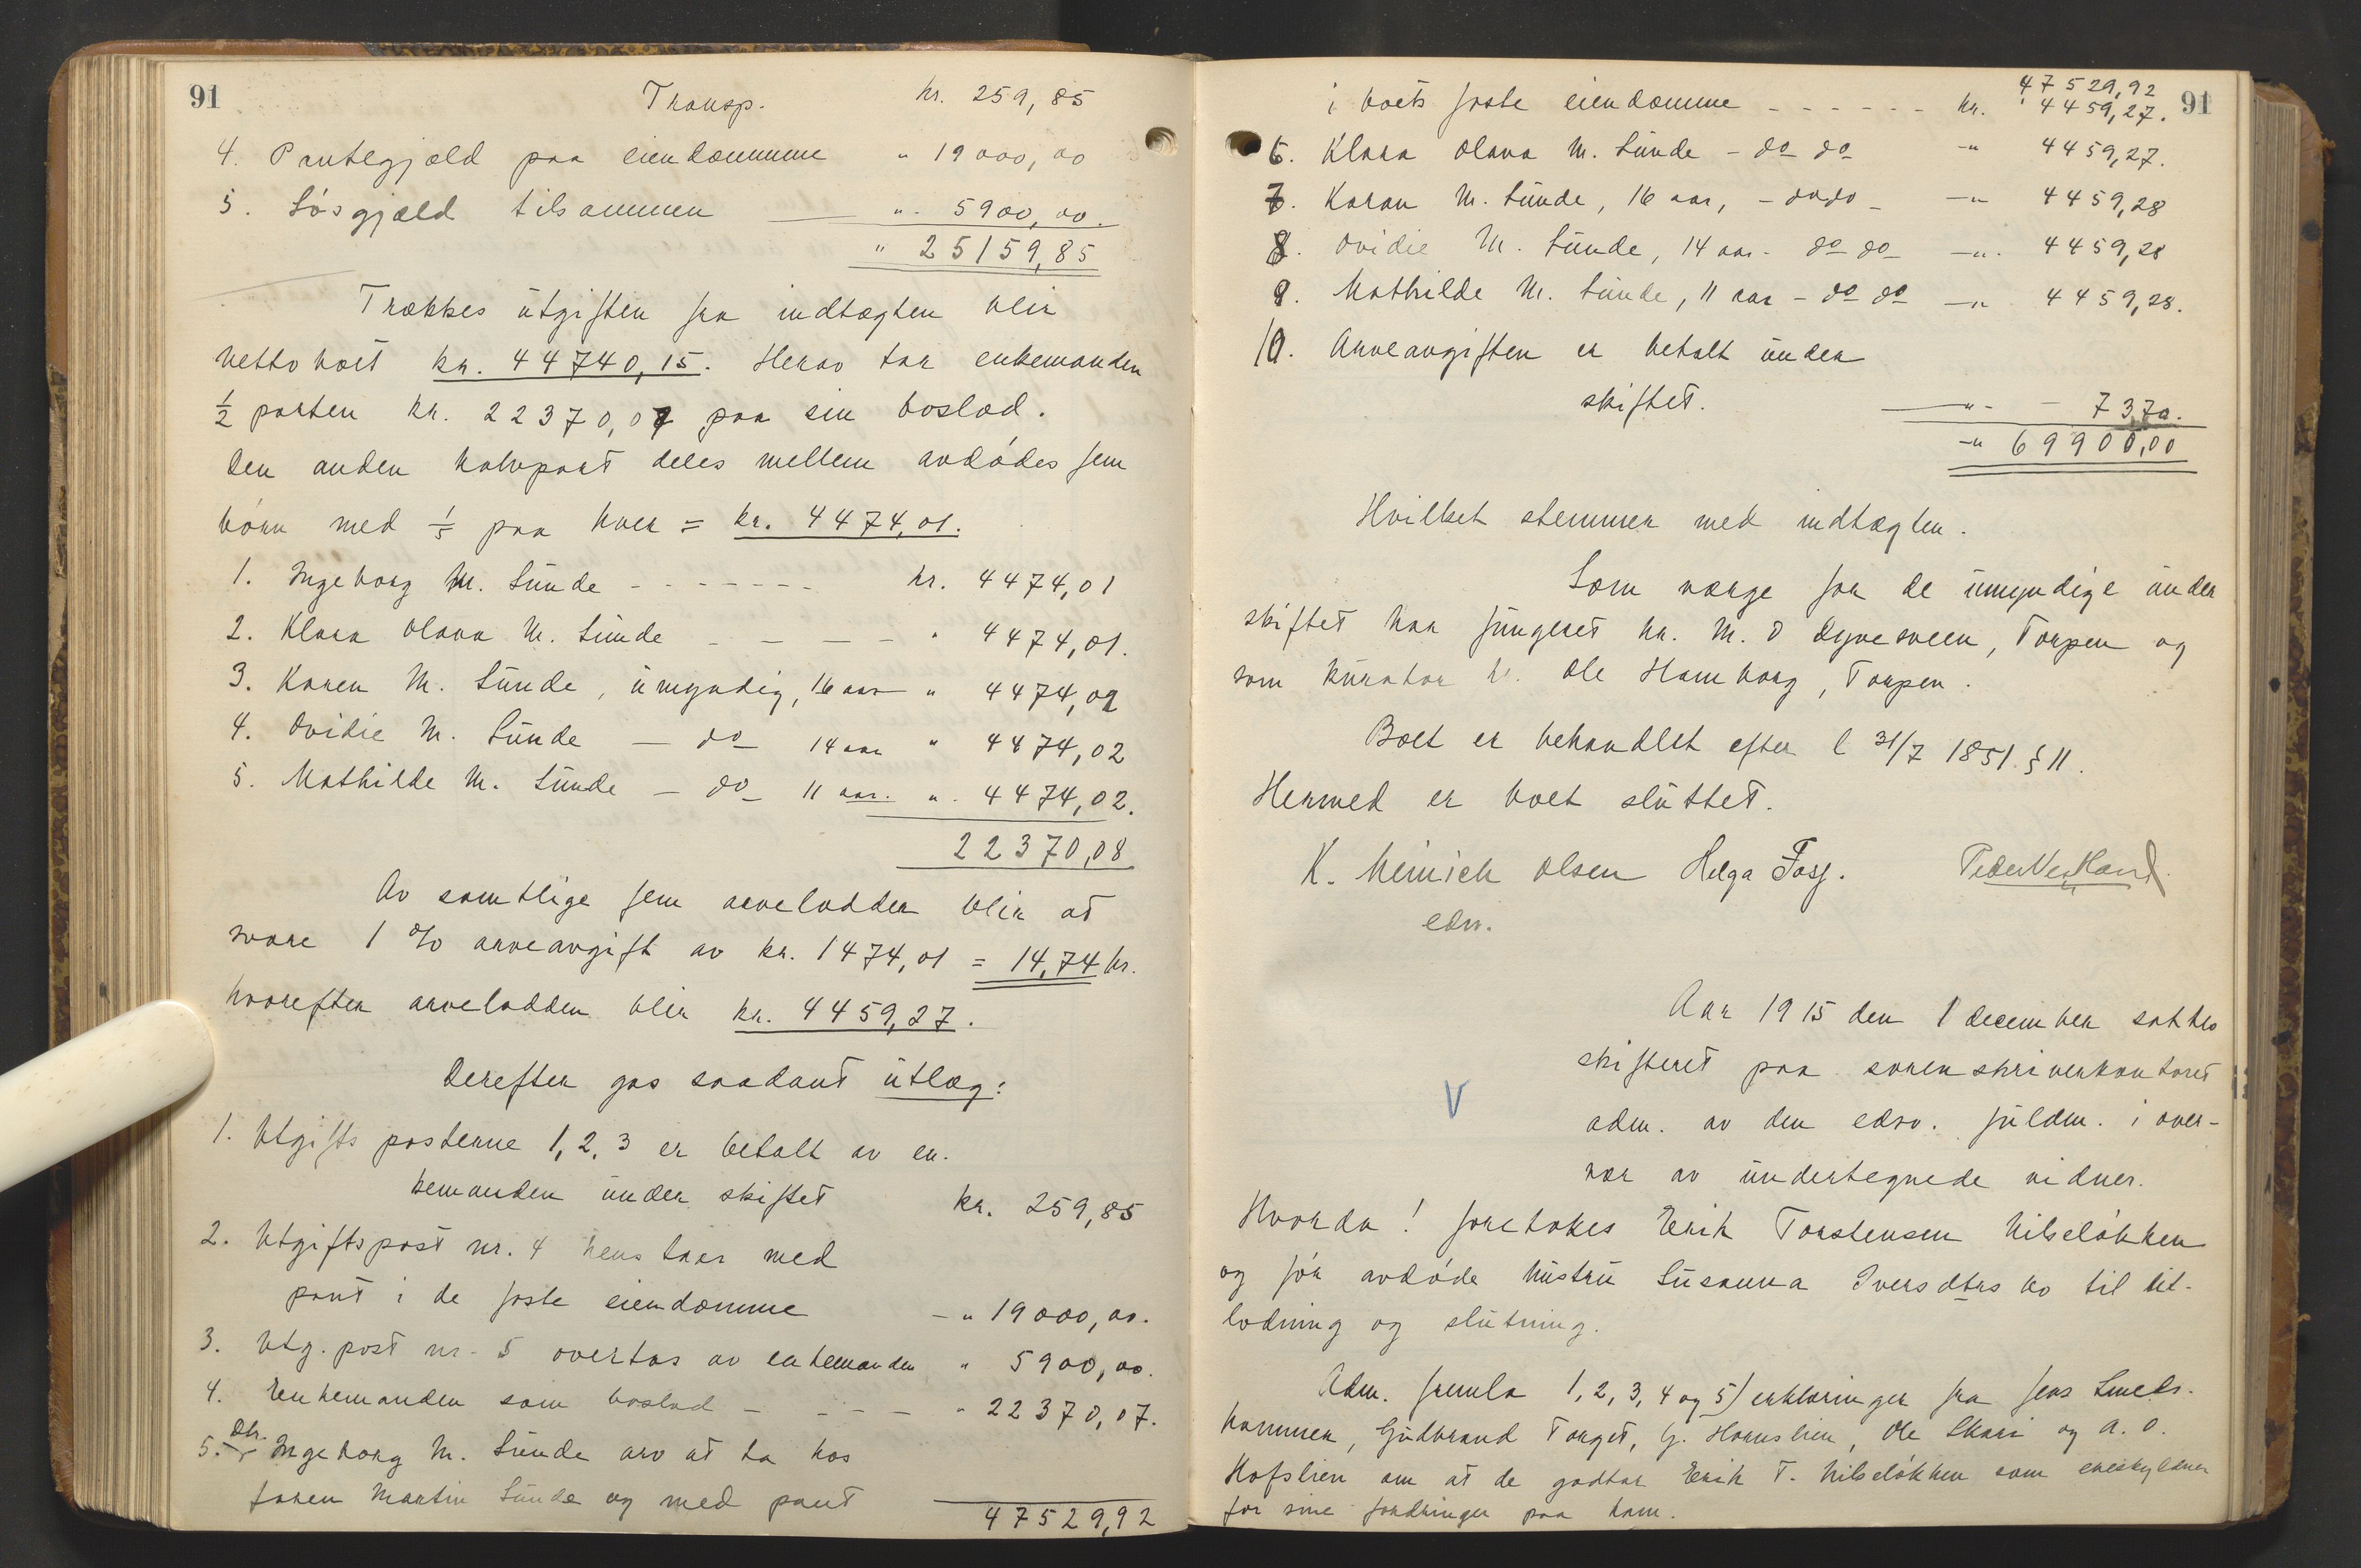 91
Transp. kr. 259,85
4. Pantegjæld paa eiendommene " 19000,00
5. Løsgjæld tilsammen " 5900,00.
" 25159,85
Trækkes utgiften fra indtægten blir
netto boet kr. 44740,15. Herav tar enkemanden
1/2 parten kr. 22370,07 paa sin boslod.
Den anden halvpart deles mellem avdødes fem
børn med 1/5 paa hver = kr. 4474,01.
1. Ingeborg M. Sunde - - - - - - - kr. 4474,01
2. Klara Olava M. Sunde - - - - " 4474,01.
3. Karen M. Sunde, umyndig, 16 aar " 4474,02
4. Ovidie M. Sunde — do 14 aar " 4474,02
5. Mathilde M. Sunde — do 11 aar. " 4474,02.
22370,08
Av samtlige fem arvelodder blir at
svare 1 % arveavgift av kr. 1474,01 = 14,74 kr.
hvorefter arvelodden blir kr. 4459,27.
Derefter gas saadant utlæg:
1. Utgiftsposterne 1, 2, 3 er betalt av en-
kemanden under skiftet kr. 259,85
2. Utgiftspost nr. 4 henstaar med
pant i de faste eiendomme -" 19000,00.
3. Utg. post nr. 5 overtas av enkemanden " 5900,00.
4. Enkemanden som boslod - - - - " 22370,07.
5. Dtr. Ingeborg M. Sunde arv at ha hos
faren Martin Sunde og med pant
47529,92
91
47529,92
i boets faste eiendomme - - - - - - kr. 4459,27.
6. Klara Olava M. Sunde - do do -" 4459,27.
7. Karen M. Sunde, 16 aar, - do do - -" 4459,28
8. Ovidie M. Sunde, 14 aar - do do -" 4459,28
9. Mathilde M. Sunde, 11 aar - do do -" 4459,28.
10. Arveavgiften er betalt under
skiftet. -" - 73,70.
-" 69900,00
Hvilket stemmer med indtægten.
Som værge for de umyndige under
skiftet har fungeret hr. M. O Dyvesveen, Torpen og
som kurator hr. Ole Hamborg, Torpen.
Boet er behandlet efter l 31/7 1851 § 11.
Hermed er boet sluttet.
K. Meinich Olsen Helga Fosf.
edsv.
Aar 1915 den 1 december sattes
skifteret paa sorenskriverkontoret
adm. av den edsv. fuldm. i over-
vær av undertegnede vidner.
V
Hvorda! foretokes Erik Torstensen Nilseløkken
og før avdøde hustru Susanna Iversdtrs bo til ut-
lodning og slutning.
Adm. fremla 1, 2, 3, 4 og 5) erklæringer fra Jens Smeds-
hammer, Gudbrand Torget, G. Hornslien, Ole Skari og A. O.
Hofslien om at de godtar Erik T. Nilseløkken som eneskyldner
for sine fordringer paa ham.